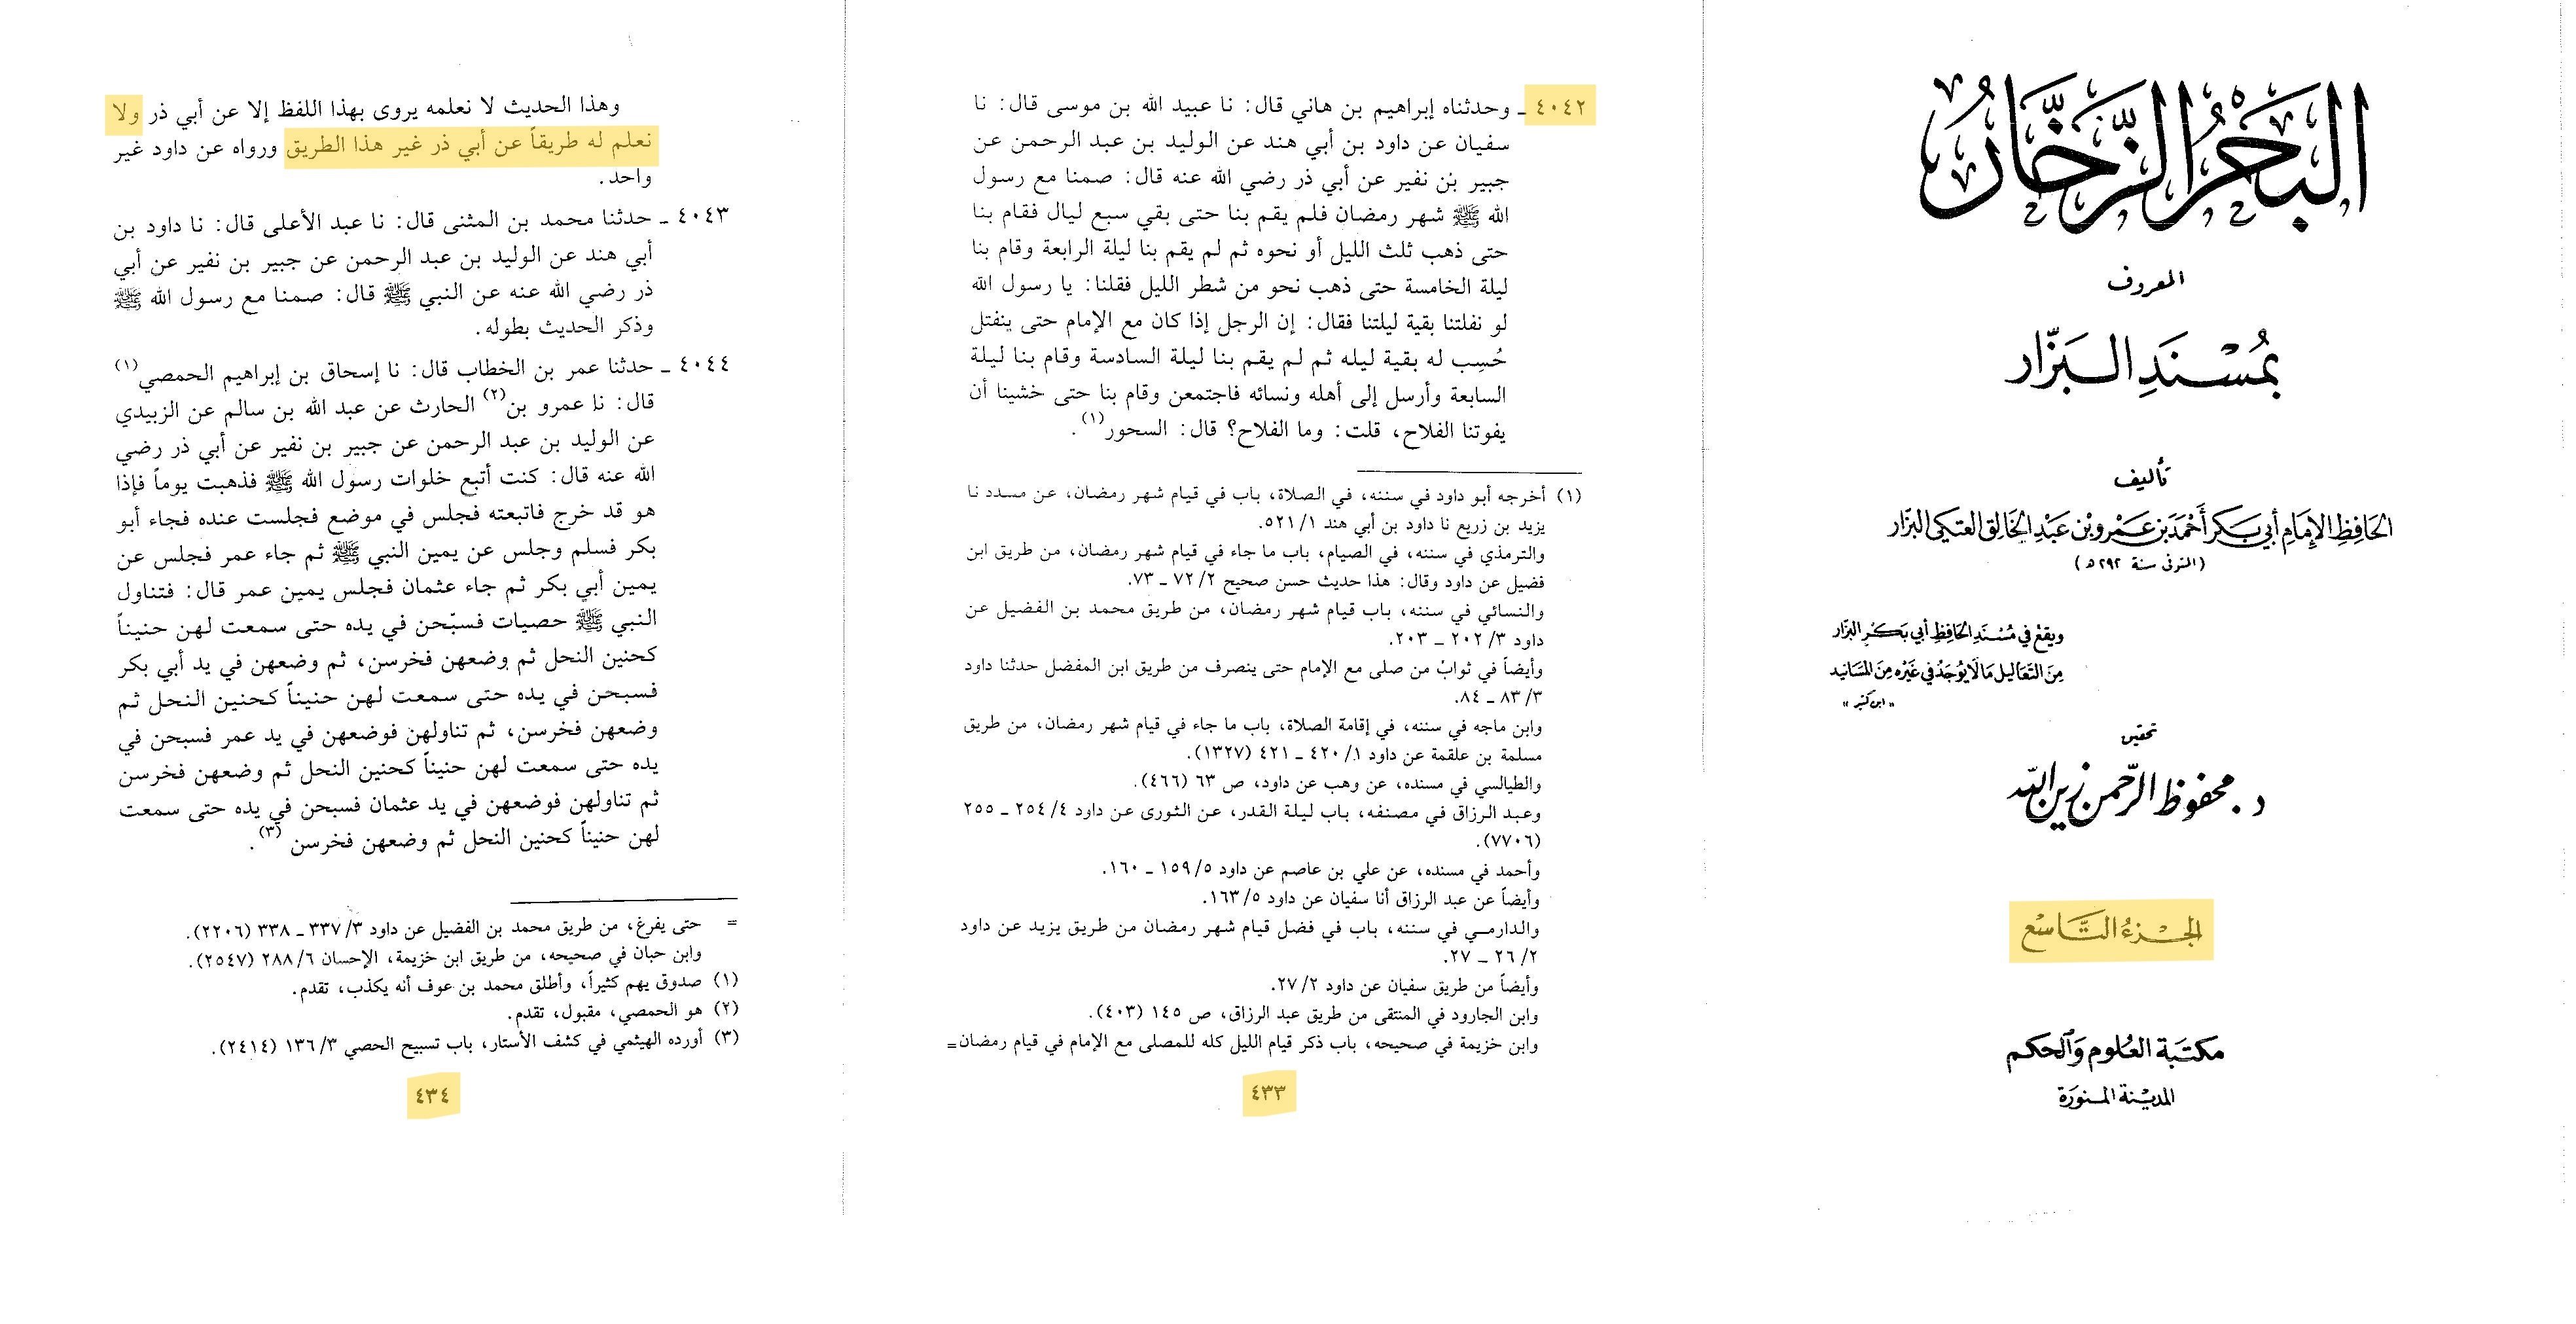 البحر الزخار
المعروف
بمسند البزار
تأليف
الحافظ الإمام أبي بكر أحمد بن عمرو بن عبد الخالق العتكي البزار
(المتوفى سنة ٢٩٢ ھ)
ويقع في مسند الحافظ أبي بكر البزار
من التعاليل ما لا يوجد في غيره من المسانيد
« ابن كثير »
تحقيق
د. محفوظ الرحمن زين الله
الجزء التاسع
مكتبة العلوم والحكم
المدينة المنورة
٤٠٤٢ ـ وحدثناه إبراهيم بن هاني قال: نا عبيد الله بن موسى قال: نا
سفيان عن داود بن أبي هند عن الوليد بن عبد الرحمن عن
جبير بن نفير عن أبي ذر رضي الله عنه قال: صمنا مع رسول
الله ﷺ شهر رمضان فلم يقم بنا حتى بقي سبع ليال فقام بنا
حتى ذهب ثلث الليل أو نحوه ثم لم يقم بنا ليلة الرابعة وقام بنا
ليلة الخامسة حتى ذهب نحو من شطر الليل فقلنا: يا رسول الله
لو نفلتنا بقية ليلتنا فقال: إن الرجل إذا كان مع الإمام حتى ينفتل
حُسِب له بقية ليله ثم لم يقم بنا ليلة السادسة وقام بنا ليلة
السابعة وأرسل إلى أهله ونسائه فاجتمعن وقام بنا حتى خشينا أن
يفوتنا الفلاح، قلت: وما الفلاح؟ قال: السحور(١).
(١) أخرجه أبو داود في سننه، في الصلاة، باب في قيام شهر رمضان، عن مسدد نا
يزيد بن زريع نا داود بن أبي هند ١/ ٥٢١.
والترمذي في سننه، في الصيام، باب ما جاء في قيام شهر رمضان، من طريق ابن
فضيل عن داود وقال: هذا حديث حسن صحيح ٢/ ٧٢ ـ ٧٣.
والنسائي في سننه، باب قيام شهر رمضان، من طريق محمد بن الفضيل عن
داود ٣/ ٢٠٢ ـ ٢٠٣.
وأيضاً في ثواب من صلى مع الإمام حتى ينصرف من طريق ابن المفضل حدثنا داود
٣/ ٨٣ ـ ٨٤.
وابن ماجه في سننه، في إقامة الصلاة، باب ما جاء في قيام شهر رمضان، من طريق
مسلمة بن علقمة عن داود ١/ ٤٢٠ ـ ٤٢١ (١٣٢٧).
والطيالسي في مسنده، عن وهب عن داود، ص ٦٣ (٤٦٦).
وعبد الرزاق في مصنفه، باب ليلة القدر، عن الثورى عن داود ٤/ ٢٥٤ ـ ٢٥٥
(٧٧٠٦).
وأحمد في مسنده، عن علي بن عاصم عن داود ٥/ ١٥٩ ـ ١٦٠.
وأيضاً عن عبد الرزاق أنا سفيان عن داود ٥/ ١٦٣.
والدارمي في سننه، باب في فضل قيام شهر رمضان من طريق يزيد عن داود
٢/ ٢٦ ـ ٢٧.
وأيضاً من طريق سفيان عن داود ٢/ ٢٧.
وابن الجارود في المنتقى من طريق عبد الرزاق، ص ١٤٥ (٤٠٣).
وابن خزيمة في صحيحه، باب ذكر قيام الليل كله للمصلى مع الإمام في قيام رمضان=
٤٣٣
وهذا الحديث لا نعلمه يروى بهذا اللفظ إلا عن أبي ذر ولا
نعلم له طريقاً عن أبي ذر غير هذا الطريق ورواه عن داود غير
واحد.
٤٠٤٣ ـ حدثنا محمد بن المثنى قال: نا عبد الأعلى قال: نا داود بن
أبي هند عن الوليد بن عبد الرحمن عن جبير بن نفير عن أبي
ذر رضي الله عنه عن النبي ﷺ قال: صمنا مع رسول الله ﷺ
وذكر الحديث بطوله.
٤٠٤٤ ـ حدثنا عمر بن الخطاب قال: نا إسحاق بن إبراهيم الحمصي(١)
قال: نا عمرو بن(٢) الحارث عن عبد الله بن سالم عن الزبيدي
عن الوليد بن عبد الرحمن عن جبير بن نفير عن أبي ذر رضي
الله عنه قال: كنت أتبع خلوات رسول الله ﷺ فذهبت يوماً فإذا
هو قد خرج فاتبعته فجلس في موضع فجلست عنده فجاء أبو
بكر فسلم وجلس عن يمين النبي ﷺ ثم جاء عمر فجلس عن
يمين أبي بكر ثم جاء عثمان فجلس يمين عمر قال: فتناول
النبي ﷺ حصيات فسبّحن في يده حتى سمعت لهن حنيناً
كحنين النحل ثم وضعهن فخرسن، ثم وضعهن في يد أبي بكر
فسبحن في يده حتى سمعت لهن حنيناً كحنين النحل ثم
وضعهن فخرسن، ثم تناولهن فوضعهن في يد عمر فسبحن في
يده حتى سمعت لهن حنيناً كحنين النحل ثم وضعهن فخرسن
ثم تناولهن فوضعهن في يد عثمان فسبحن في يده حتى سمعت
لهن حنيناً كحنين النحل ثم وضعهن فخرسن (٣).
= حتى يفرغ، من طريق محمد بن الفضيل عن داود ٣/ ٣٣٧ ـ ٣٣٨ (٢٢٠٦).
وابن حبان في صحيحه، من طريق ابن خزيمة، الإحسان ٦/ ٢٨٨ (٢٥٤٧).
(١) صدوق يهم كثيراً، وأطلق محمد بن عوف أنه يكذب، تقدم.
(٢) هو الحمصي، مقبول، تقدم.
(٣) أورده الهيثمي في كشف الأستار، باب تسبيح الحصي ٣/ ١٣٦ (٢٤١٤).
٤٣٤